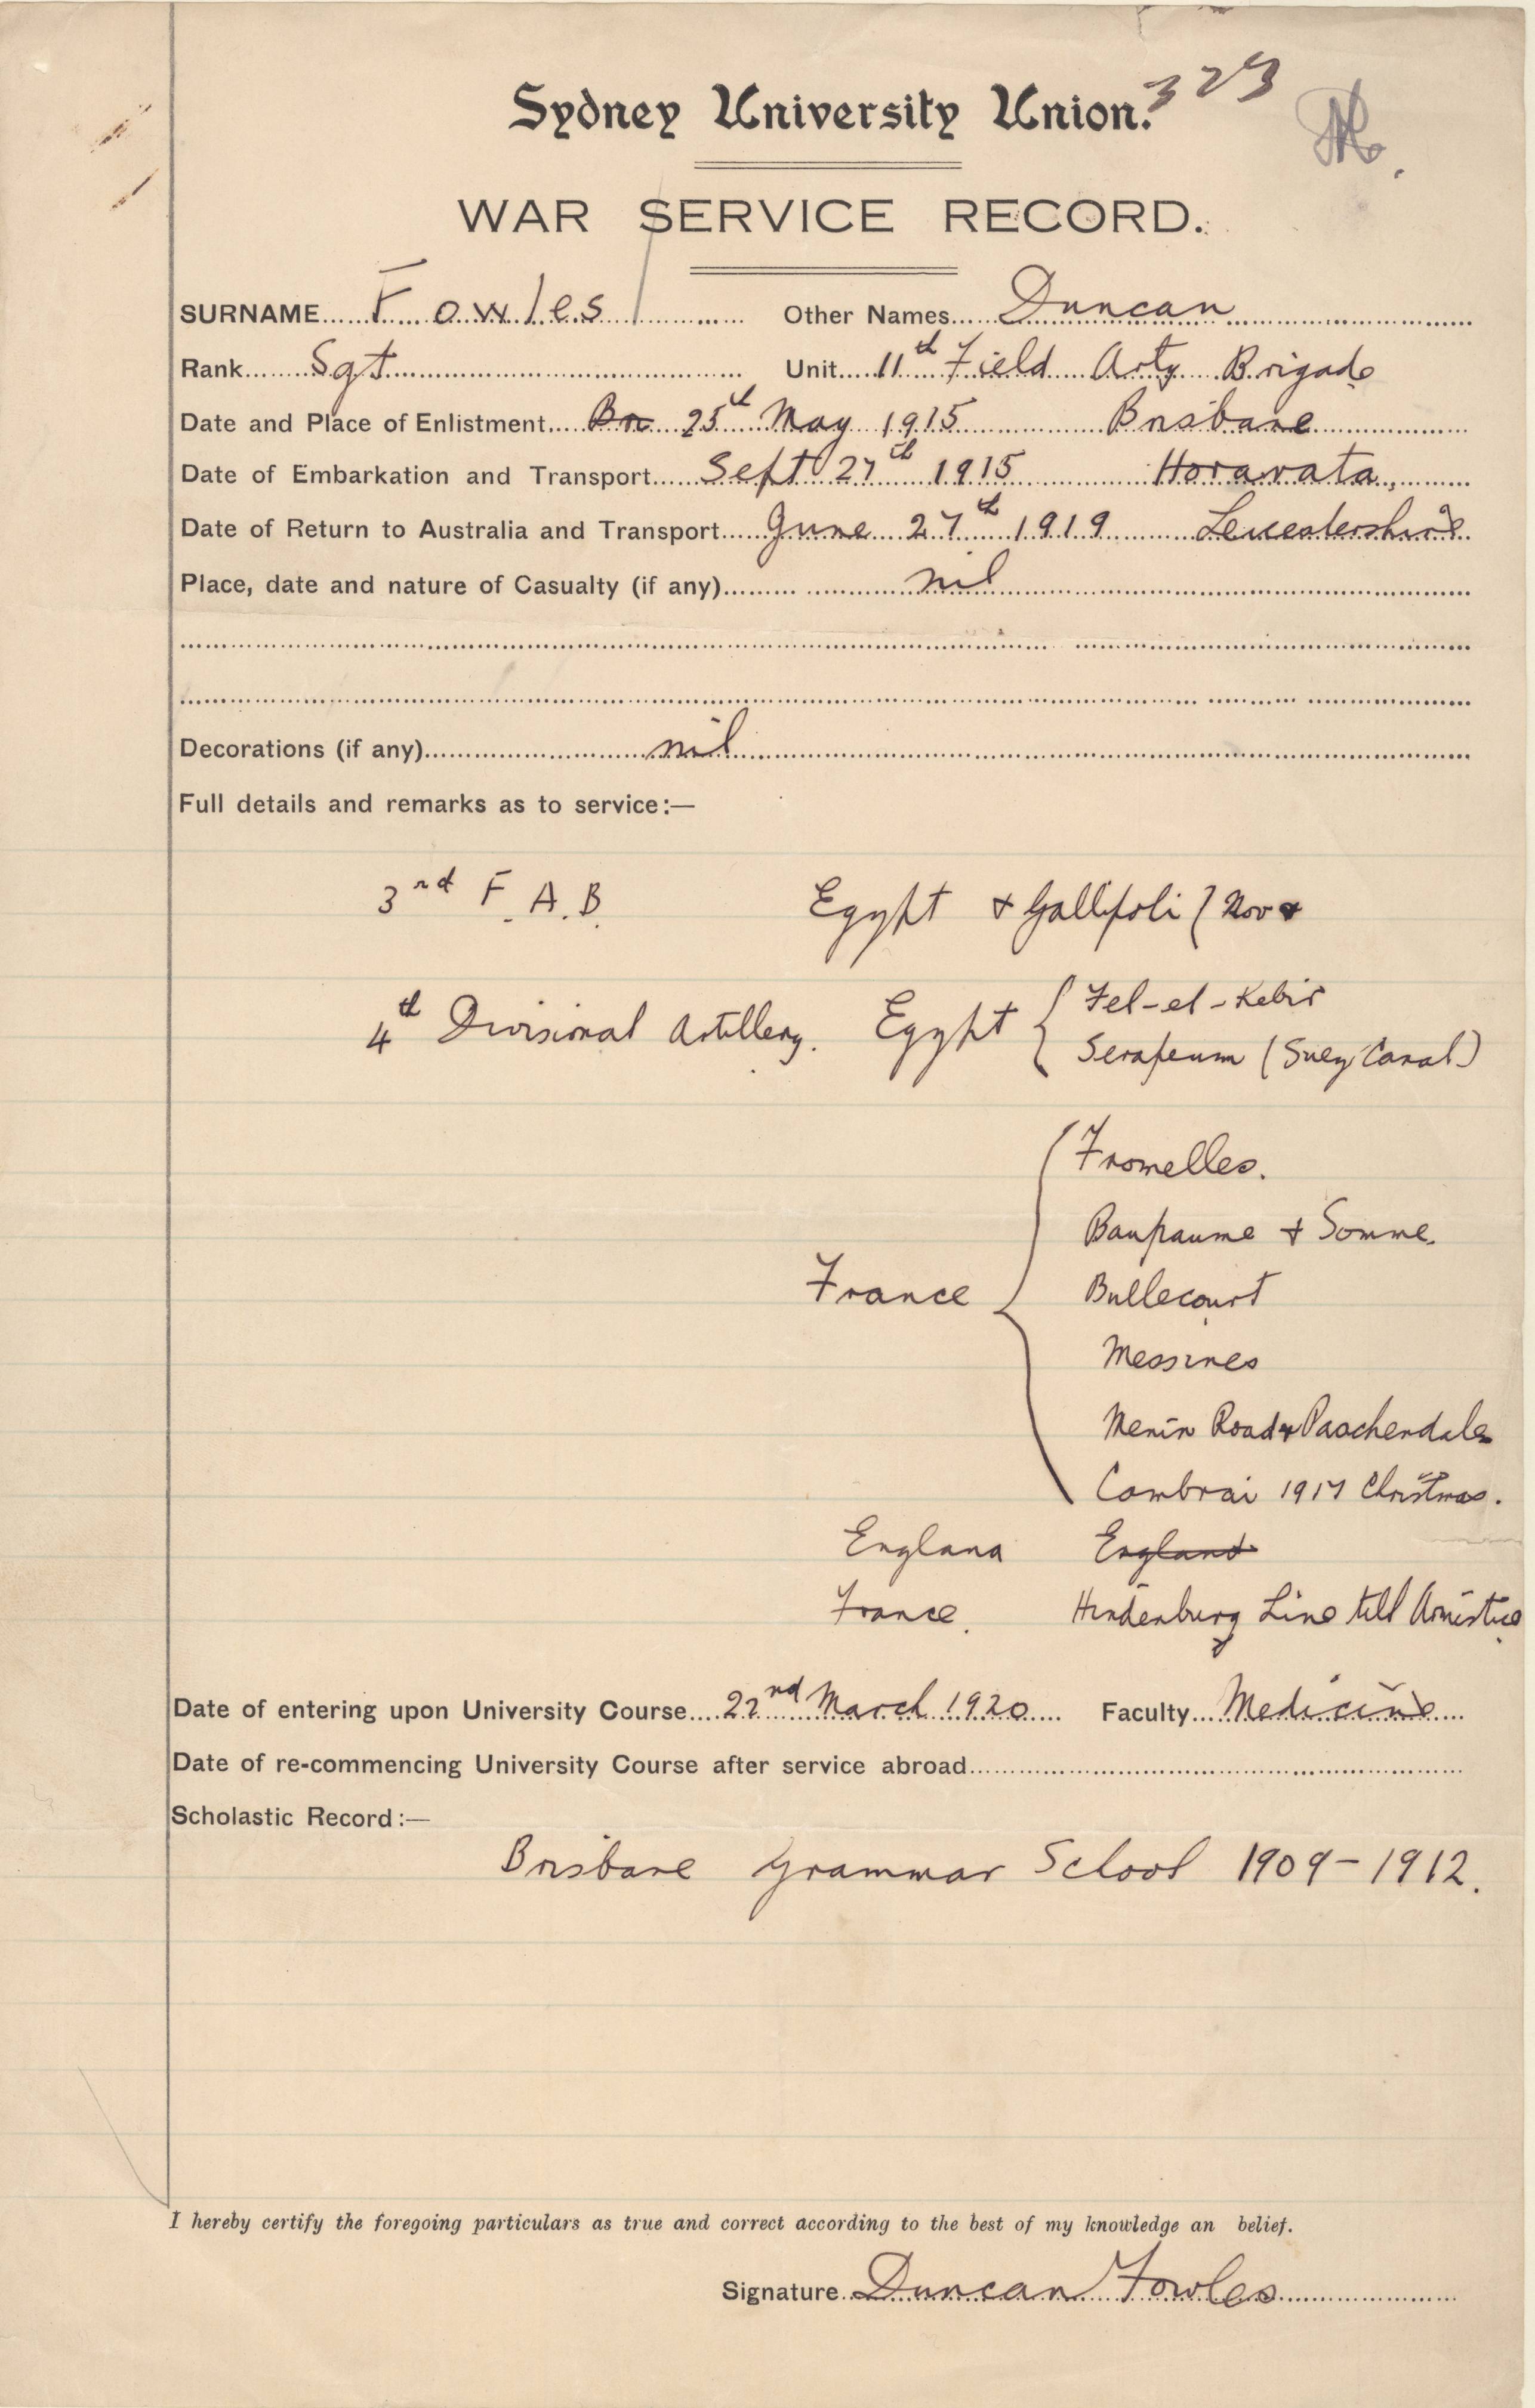 Sydney University Union. 323
WAR SERVICE RECORD.
SURNAME Fowles Other Names Duncan
Rank Sgt Unit 11th Field Arty Brigade
Date and Place of Enlistment Br 25th May 1915 Brisbane
Date of Embarkation and Transport Sept 27th 1915 Hororata,
Date of Return to Australia and Transport June 27th 1919 Leicestershire
Place, date and nature of Casualty (if any) nil
Decorations (if any) nil
Full details and remarks as to service:—
3rd F.A.B. Egypt & Gallipoli (Nov &
4th Divisional Artillery. Egypt { Tel-el-Kebir
Serapeum (Suez Canal)
Fromelles.
Baupaume & Somme.
France { Bullecourt
Messines
Menin Road & Paschendale
Cambrai 1917 Christmas.
England England
France. Hindenburg Line till Armistice
Date of entering upon University Course 22nd March 1920 Faculty Medicine
Date of re-commencing University Course after service abroad
Scholastic Record:—
Brisbane Grammar School 1909-1912.
I hereby certify the foregoing particulars as true and correct according to the best of my knowledge an belief.
Signature Duncan Fowles